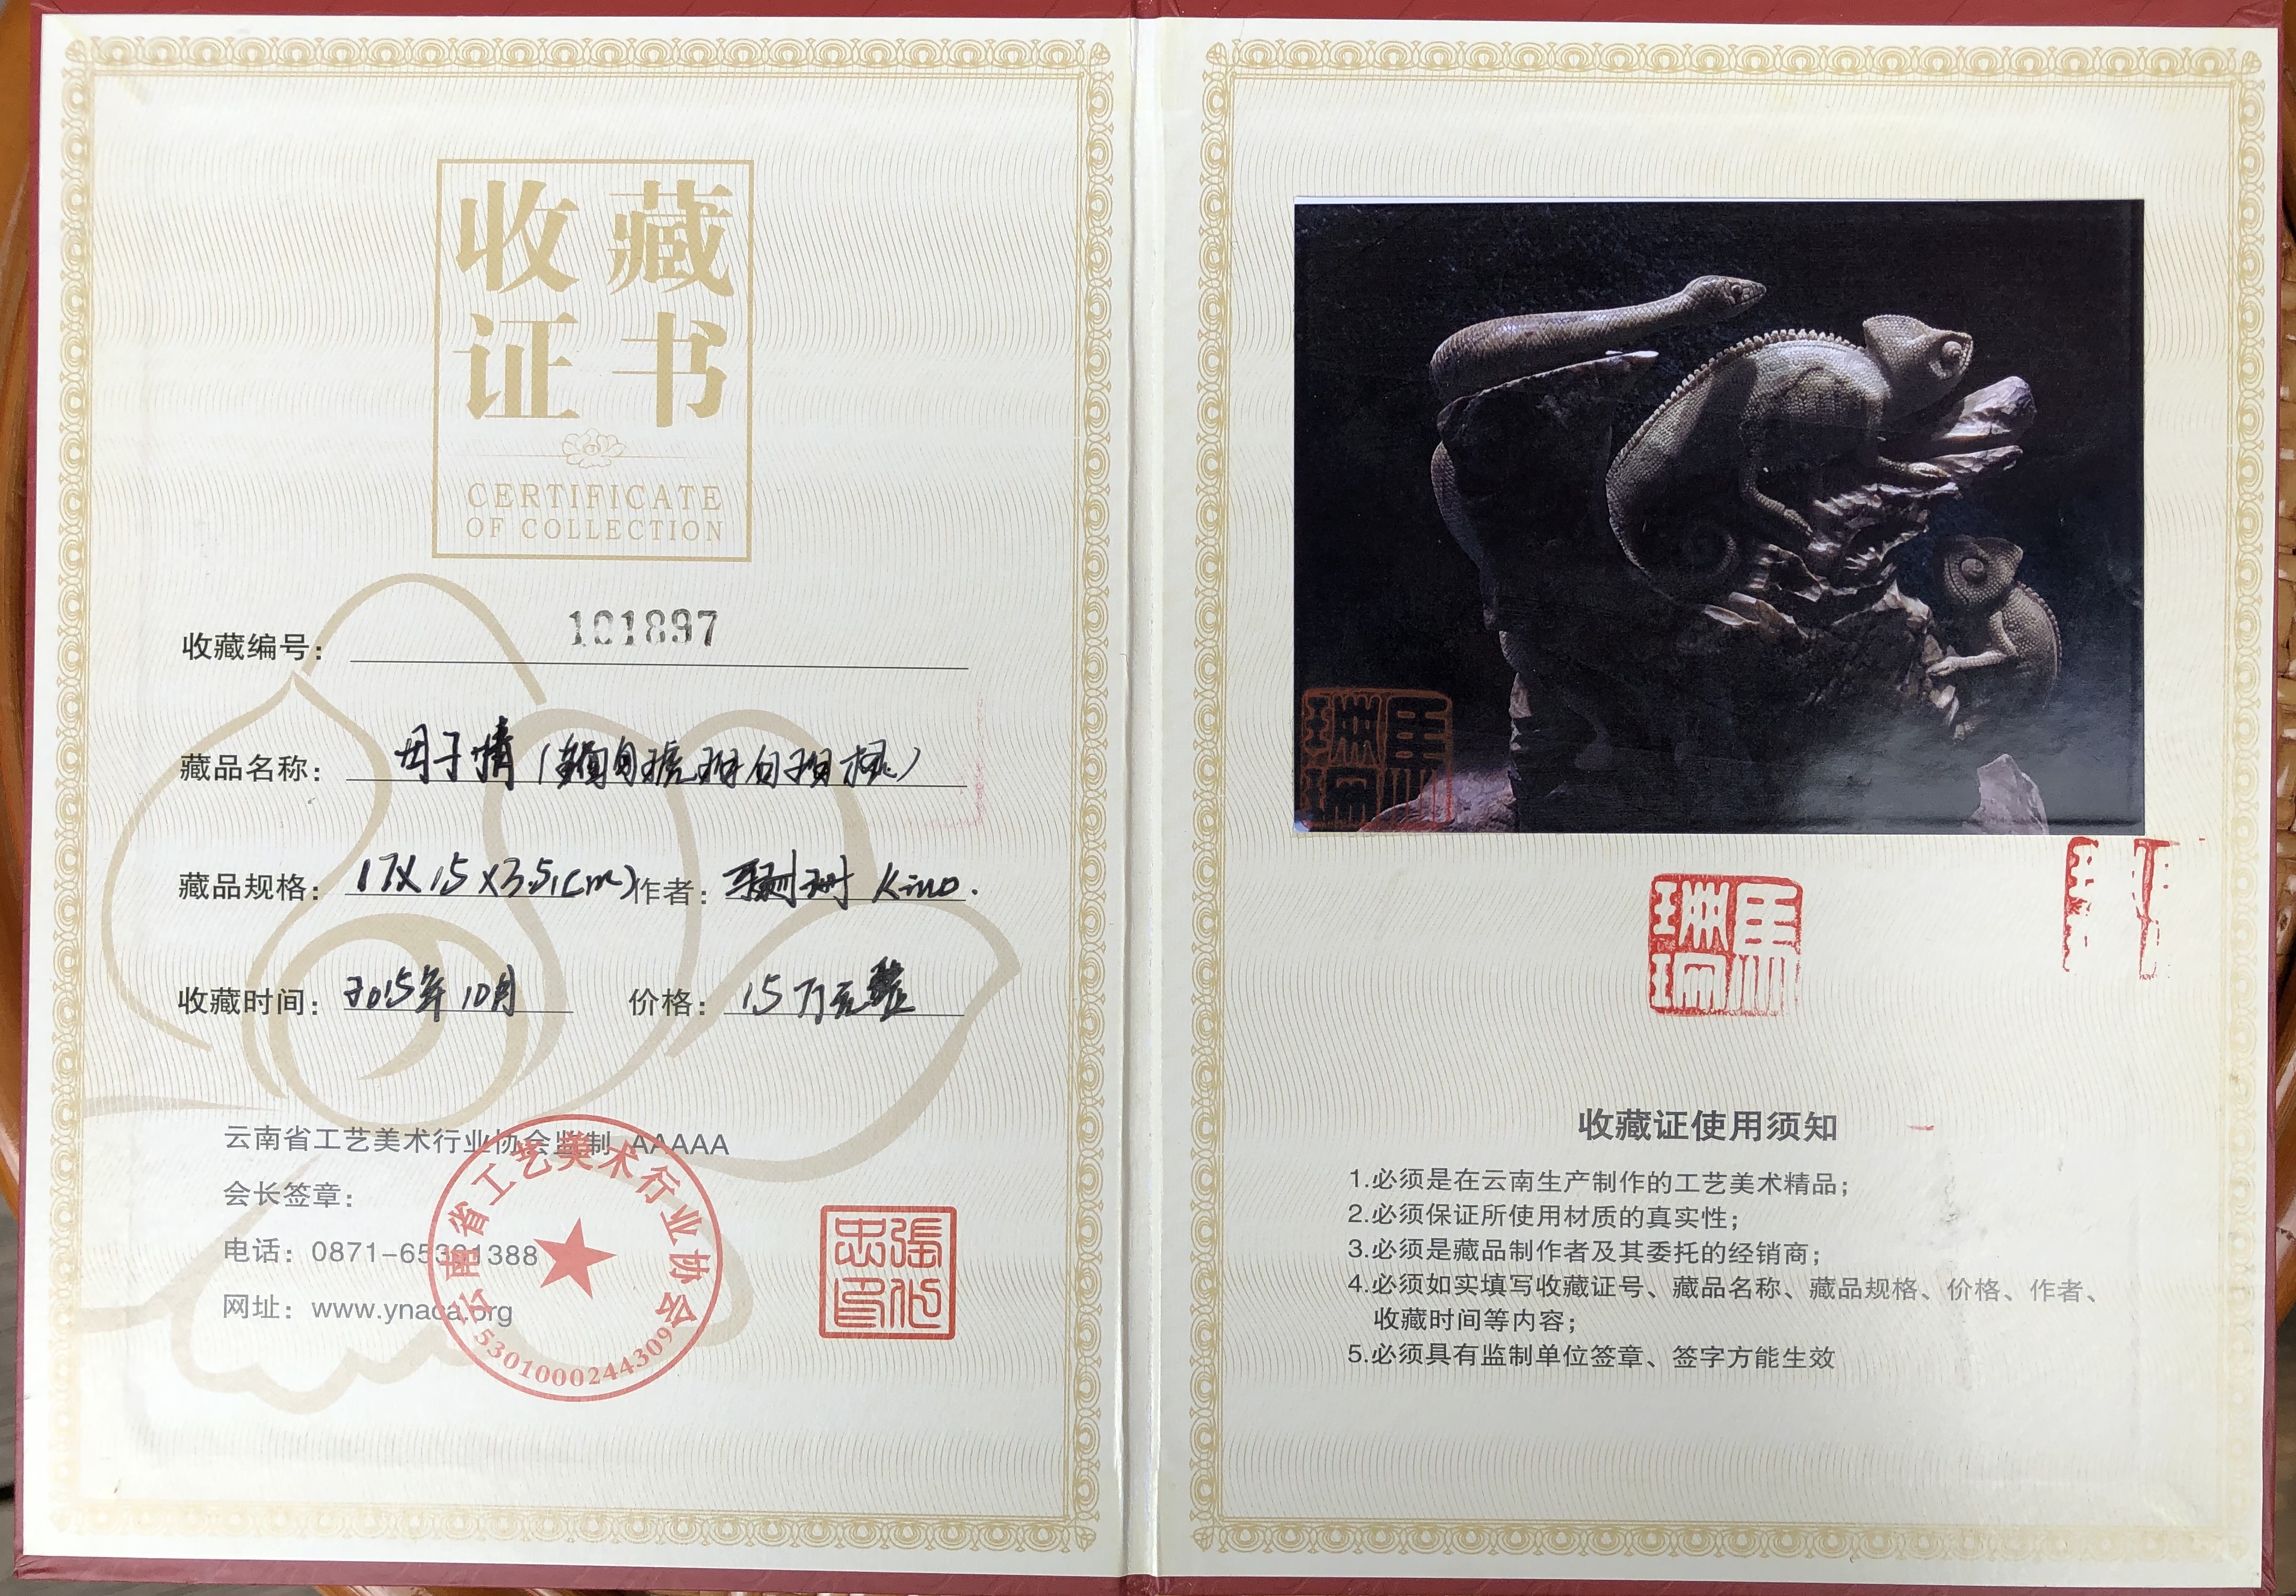 收藏
证书
CERTIFICATE
OF COLLECTION
收藏编号：101897
藏品名称：母子情（缅甸琥珀白珀根）
藏品规格：17X15X3.5(cm) 作者：
收藏时间：2015年10月 价格：15万元整
云南省工艺美术行业协会监制 AAAAA
会长签章：
电话：0871-65301388
网址：www.ynaca.org
云南省工艺美术行业协会
5301000244309
收藏证使用须知
1.必须是在云南生产制作的工艺美术精品；
2.必须保证所使用材质的真实性；
3.必须是藏品制作者及其委托的经销商；
4.必须如实填写收藏证号、藏品名称、藏品规格、价格、作者、
收藏时间等内容；
5.必须具有监制单位签章、签字方能生效